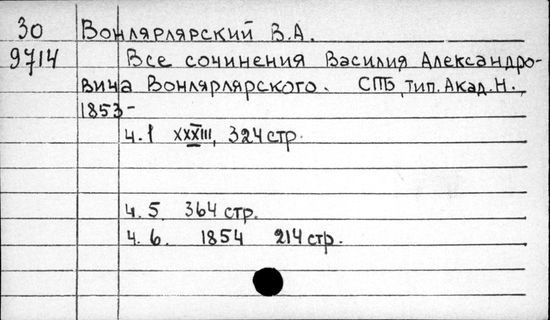 30 Вонлярлярский В.А.
9714 Все сочинения Василия Александро-
вича Вонлярлярского. СПБ, тип. Акад. Н.,
1853-
ч. 1 XXXIII, 324 стр.
ч. 5. 364 стр.
ч. 6. 1854 214 стр.